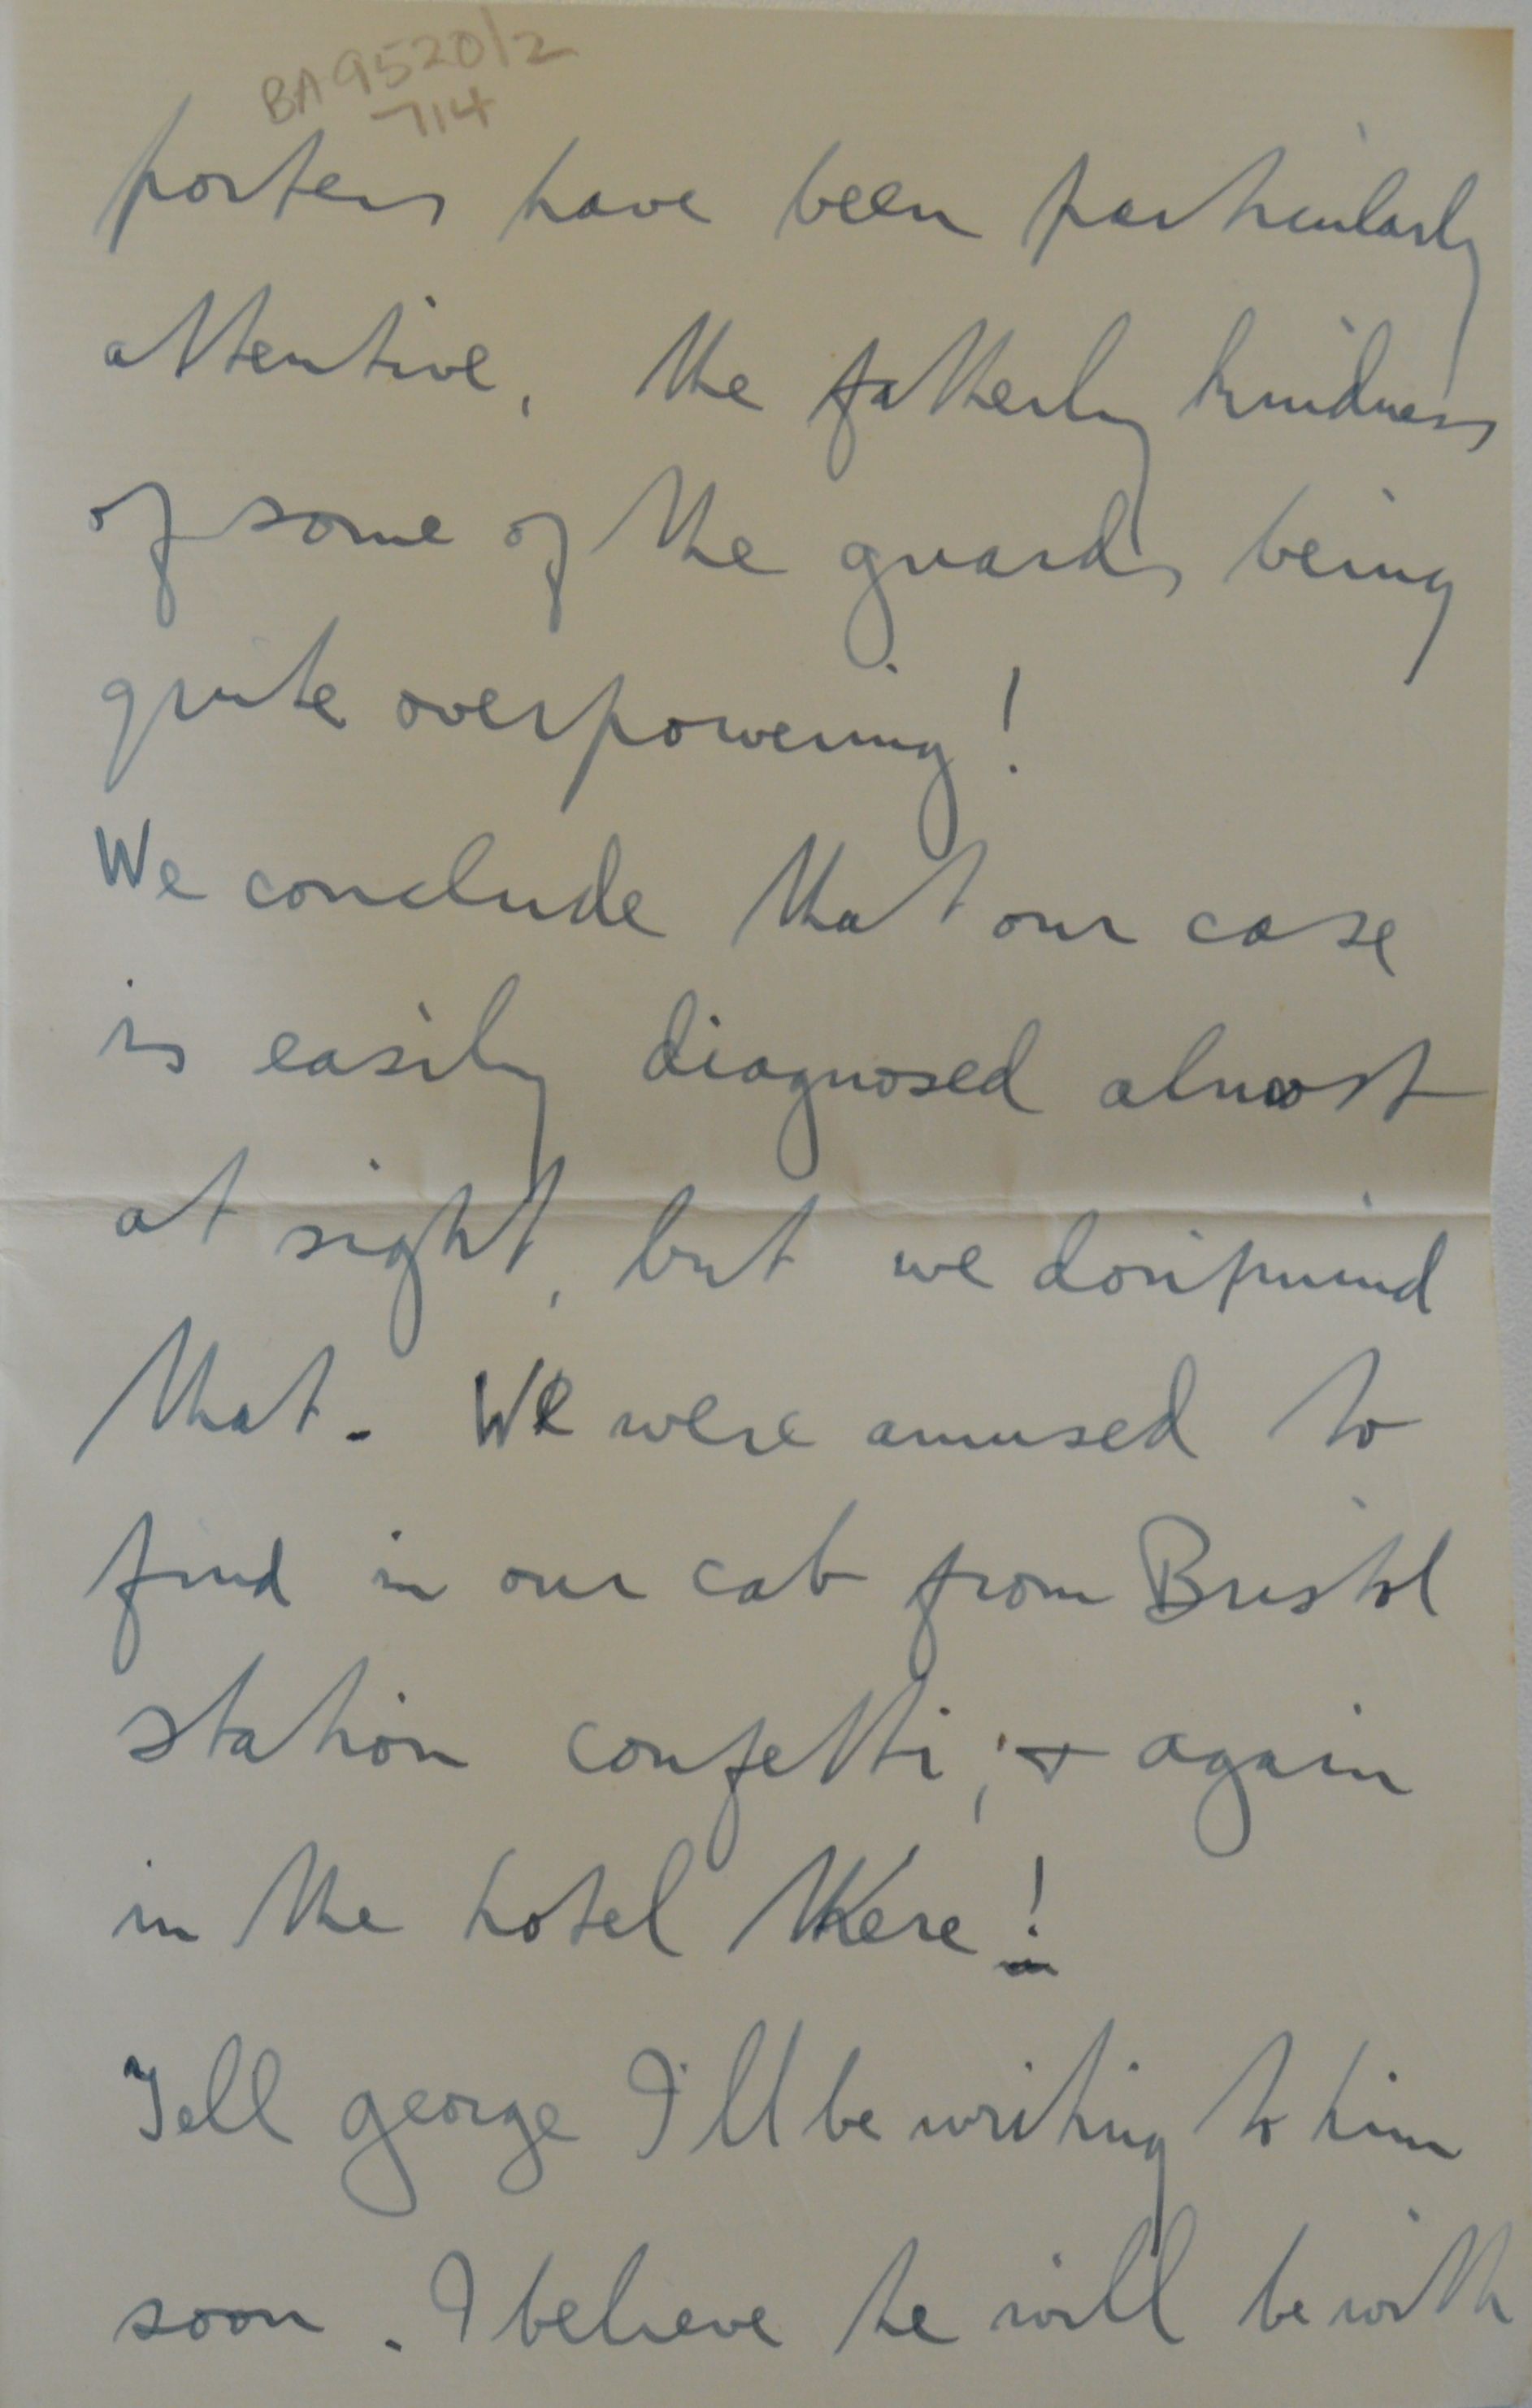 BA9520/2
714
porters have been particularly
attentive, the fatherly kindness
of some of the guards being
quite overpowering!
We conclude that our case
is easily diagnosed almost
at sight, but we don't mind
that. We were amused to
find in our cab from Bristol
station confetti; & again
in the hotel there!
Tell george I'll be writing to him
soon. I believe he will be with